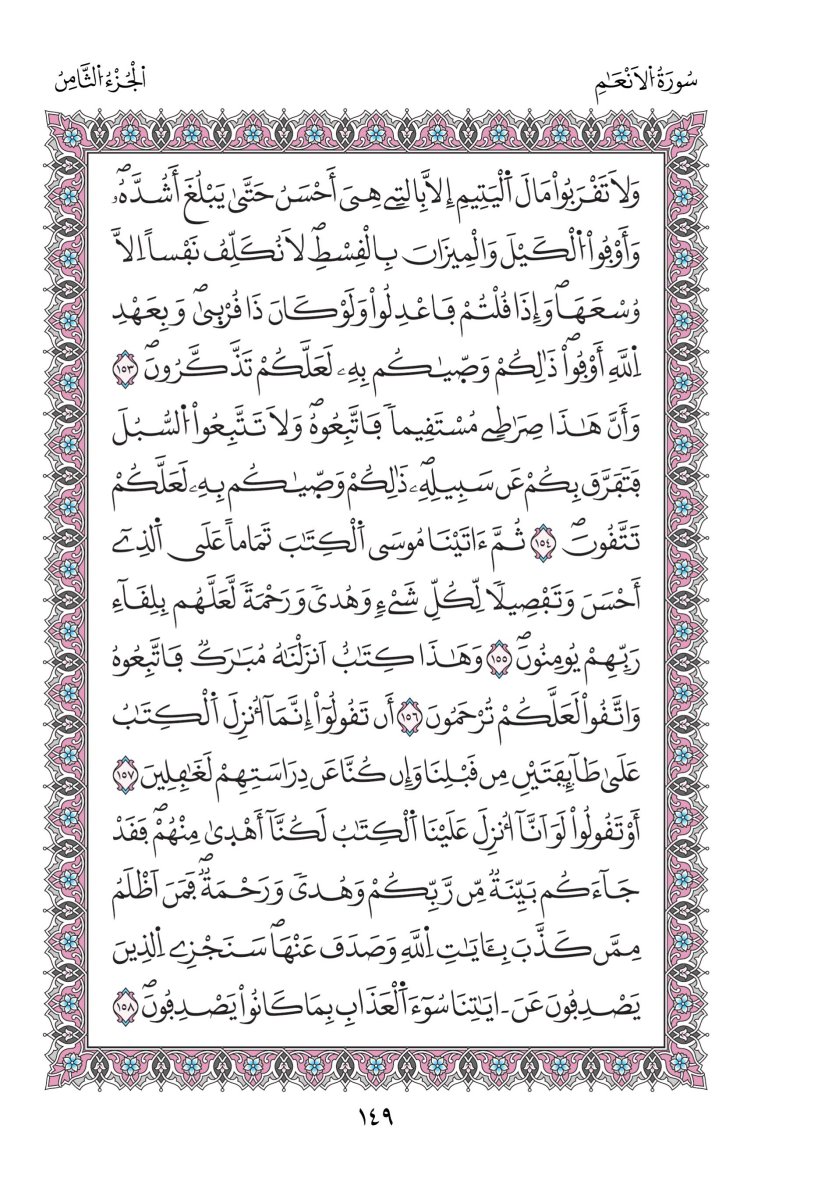 سُورَةُ اُ۬لَانْعَٰمِ
اُ۬لْجُزْءُ اُ۬لثَّامِنُ
وَلَا تَقْرَبُواْ مَالَ اَ۬لْيَتِيمِ إِلَّا بِالتِے هِيَ أَحْسَنُ حَتَّىٰ يَبْلُغَ أَشُدَّهُۥۖ
وَأَوْفُواْ اُ۬لْكَيْلَ وَالْمِيزَانَ بِالْقِسْطِۖ لَا نُكَلِّفُ نَفْساً اِلَّا
وُسْعَهَاۖ وَإِذَا قُلْتُمْ فَاعْدِلُواْ وَلَوْ كَانَ ذَا قُرْب۪ىٰۖ وَبِعَهْدِ
اِ۬للَّهِ أَوْفُواْۖ ذَٰلِكُمْ وَصّ۪يٰكُم بِهِۦ لَعَلَّكُمْ تَذَّكَّرُونَۖ ١٥٣
وَأَنَّ هَٰذَا صِرَٰطِے مُسْتَقِيماٗ فَاتَّبِعُوهُۖ وَلَا تَتَّبِعُواْ اُ۬لسُّبُلَ
فَتَفَرَّقَ بِكُمْ عَن سَبِيلِهِۦۖ ذَٰلِكُمْ وَصّ۪يٰكُم بِهِۦ لَعَلَّكُمْ
تَتَّقُونَۖ ١٥٤ ثُمَّ ءَاتَيْنَا مُوسَى اَ۬لْكِتَٰبَ تَمَاماً عَلَى اَ۬لذِےٓ
أَحْسَنَ وَتَفْصِيلاٗ لِّكُلِّ شَےْءٖ وَهُدىٗ وَرَحْمَةٗ لَّعَلَّهُم بِلِقَآءِ
رَبِّهِمْ يُومِنُونَۖ ١٥٥ وَهَٰذَا كِتَٰبٌ اَنزَلْنَٰهُ مُبَٰرَكٞ فَاتَّبِعُوهُ
وَاتَّقُواْ لَعَلَّكُمْ تُرْحَمُونَ ١٥٦ أَن تَقُولُوٓاْ إِنَّمَآ أُنزِلَ اَ۬لْكِتَٰبُ
عَلَىٰ طَآئِفَتَيْنِ مِن قَبْلِنَا وَإِن كُنَّا عَن دِرَاسَتِهِمْ لَغَٰفِلِينَ ١٥٧
أَوْ تَقُولُواْ لَوَ اَنَّآ أُنزِلَ عَلَيْنَا اَ۬لْكِتَٰبُ لَكُنَّآ أَهْد۪ىٰ مِنْهُمْۖ فَقَدْ
جَآءَكُم بَيِّنَةٞ مِّن رَّبِّكُمْ وَهُدىٗ وَرَحْمَةٞۖ فَمَنَ اَظْلَمُ
مِمَّن كَذَّبَ بِـَٔايَٰتِ اِ۬للَّهِ وَصَدَفَ عَنْهَاۖ سَنَجْزِے اِ۬لذِينَ
يَصْدِفُونَ عَنَ ـ ايَٰتِنَا سُوٓءَ اَ۬لْعَذَابِ بِمَا كَانُواْ يَصْدِفُونَۖ ١٥٨
١٤٩